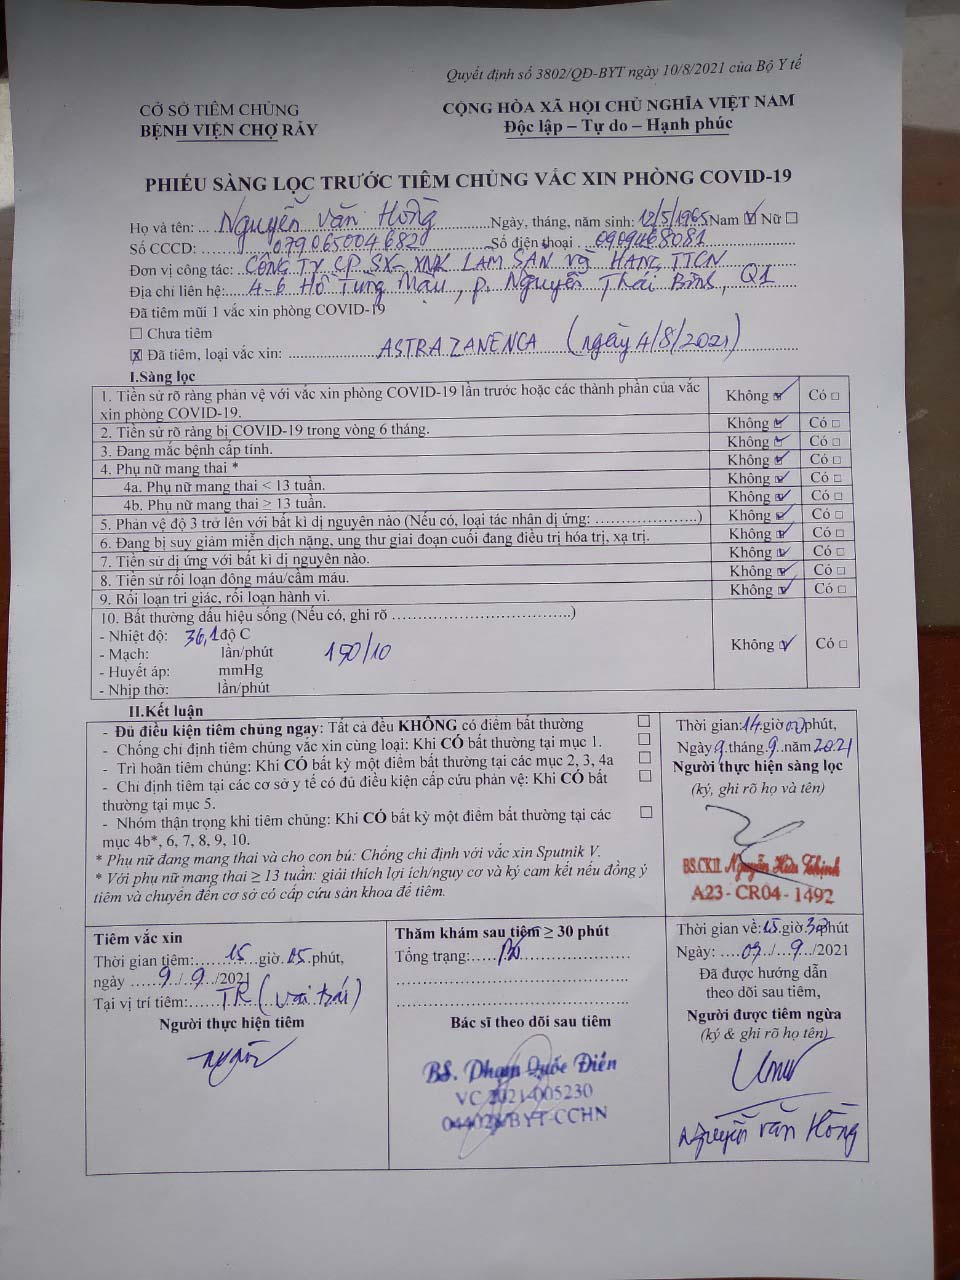 Quyết định số 3802/QĐ-BYT ngày 10/8/2021 của Bộ Y tế
CỞ SỞ TIÊM CHỦNG
BỆNH VIỆN CHỢ RẪY
CỘNG HÒA XÃ HỘI CHỦ NGHĨA VIỆT NAM
Độc lập – Tự do – Hạnh phúc
PHIẾU SÀNG LỌC TRƯỚC TIÊM CHỦNG VẮC XIN PHÒNG COVID-19
Họ và tên: ... Nguyễn Văn Hồng ... Ngày, tháng, năm sinh: 12/5/1965 Nam ☑ Nữ ☐
Số CCCD: 079065004682 Số điện thoại : 0909468081
Đơn vị công tác: CÔNG TY CP SX-XNK LÂM SẢN và HÀNG TTCN
Địa chỉ liên hệ: 4-6 Hồ Tùng Mậu, p. Nguyễn Thái Bình, Q1
Đã tiêm mũi 1 vắc xin phòng COVID-19
☐ Chưa tiêm
☒ Đã tiêm, loại vắc xin: ASTRAZANENCA (ngày 4/8/2021)
I.Sàng lọc
1. Tiền sử rõ ràng phản vệ với vắc xin phòng COVID-19 lần trước hoặc các thành phần của vắc xin phòng COVID-19. Không ☑ Có ☐
2. Tiền sử rõ ràng bị COVID-19 trong vòng 6 tháng. Không ☑ Có ☐
3. Đang mắc bệnh cấp tính. Không ☑ Có ☐
4. Phụ nữ mang thai * Không ☑ Có ☐
4a. Phụ nữ mang thai < 13 tuần. Không ☑ Có ☐
4b. Phụ nữ mang thai ≥ 13 tuần. Không ☑ Có ☐
5. Phản vệ độ 3 trở lên với bất kì dị nguyên nào (Nếu có, loại tác nhân dị ứng: ....................) Không ☑ Có ☐
6. Đang bị suy giảm miễn dịch nặng, ung thư giai đoạn cuối đang điều trị hóa trị, xạ trị. Không ☑ Có ☐
7. Tiền sử dị ứng với bất kì dị nguyên nào. Không ☑ Có ☐
8. Tiền sử rối loạn đông máu/cầm máu. Không ☑ Có ☐
9. Rối loạn tri giác, rối loạn hành vi. Không ☑ Có ☐
10. Bất thường dấu hiệu sống (Nếu có, ghi rõ ..................................)
- Nhiệt độ: 36,1 độ C
- Mạch: lần/phút 190/10 Không ☑ Có ☐
- Huyết áp: mmHg
- Nhịp thở: lần/phút
II.Kết luận
- Đủ điều kiện tiêm chủng ngay: Tất cả đều KHÔNG có điểm bất thường ☐
- Chống chỉ định tiêm chủng vắc xin cùng loại: Khi CÓ bất thường tại mục 1. ☐
- Trì hoãn tiêm chủng: Khi CÓ bất kỳ một điểm bất thường tại các mục 2, 3, 4a ☐
- Chỉ định tiêm tại các cơ sở y tế có đủ điều kiện cấp cứu phản vệ: Khi CÓ bất ☐
thường tại mục 5.
- Nhóm thận trọng khi tiêm chủng: Khi CÓ bất kỳ một điểm bất thường tại các ☐
mục 4b*, 6, 7, 8, 9, 10.
* Phụ nữ đang mang thai và cho con bú: Chống chỉ định với vắc xin Sputnik V.
* Với phụ nữ mang thai ≥ 13 tuần: giải thích lợi ích/nguy cơ và ký cam kết nếu đồng ý
tiêm và chuyển đến cơ sở có cấp cứu sản khoa để tiêm.
Thời gian: 14 giờ 00 phút,
Ngày 9 tháng 9 năm 2021
Người thực hiện sàng lọc
(ký, ghi rõ họ và tên)
BS.CKII. Nguyễn Hữu Thịnh
A23 - CR04 - 1492
Tiêm vắc xin
Thời gian tiêm: 15 giờ 05 phút,
ngày 9/9/2021
Tại vị trí tiêm: TR (vai trái)
Người thực hiện tiêm
Thăm khám sau tiêm ≥ 30 phút
Tổng trạng:
Bác sĩ theo dõi sau tiêm
BS. Phạm Quốc Điền
VC 2021-005230
044028/BYT-CCHN
Thời gian về: 15 giờ 30 phút
Ngày: 09/9/2021
Đã được hướng dẫn
theo dõi sau tiêm,
Người được tiêm ngừa
(ký & ghi rõ họ tên)
Nguyễn Văn Hồng